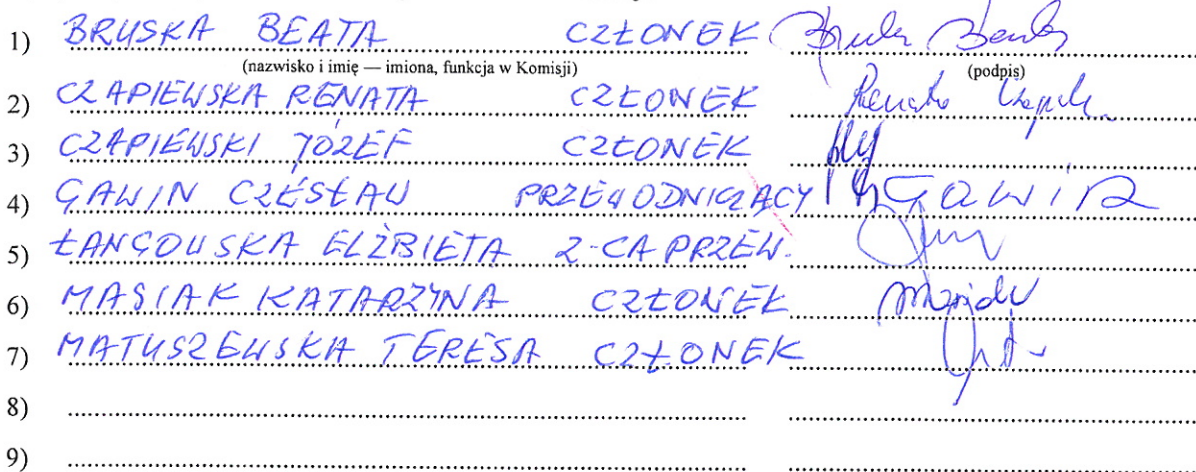 1) BRUSKA BEATA CZŁONEK Bruska Beata
(nazwisko i imię — imiona, funkcja w Komisji) (podpis)
2) CZAPIEWSKA RENATA CZŁONEK Renata
3) CZAPIEWSKI JÓZEF CZŁONEK
4) GAWIN CZESŁAW PRZEWODNICZĄCY Gawin
5) ŁANGOWSKA ELŻBIETA Z-CA PRZEW.
6) MASIAK KATARZYNA CZŁONEK
7) MATUSZEWSKA TERESA CZŁONEK
8)
9)